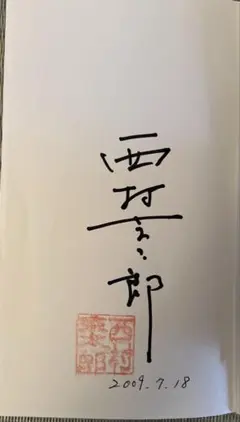 西村京太郎
西村
京太郎
2009.7.18